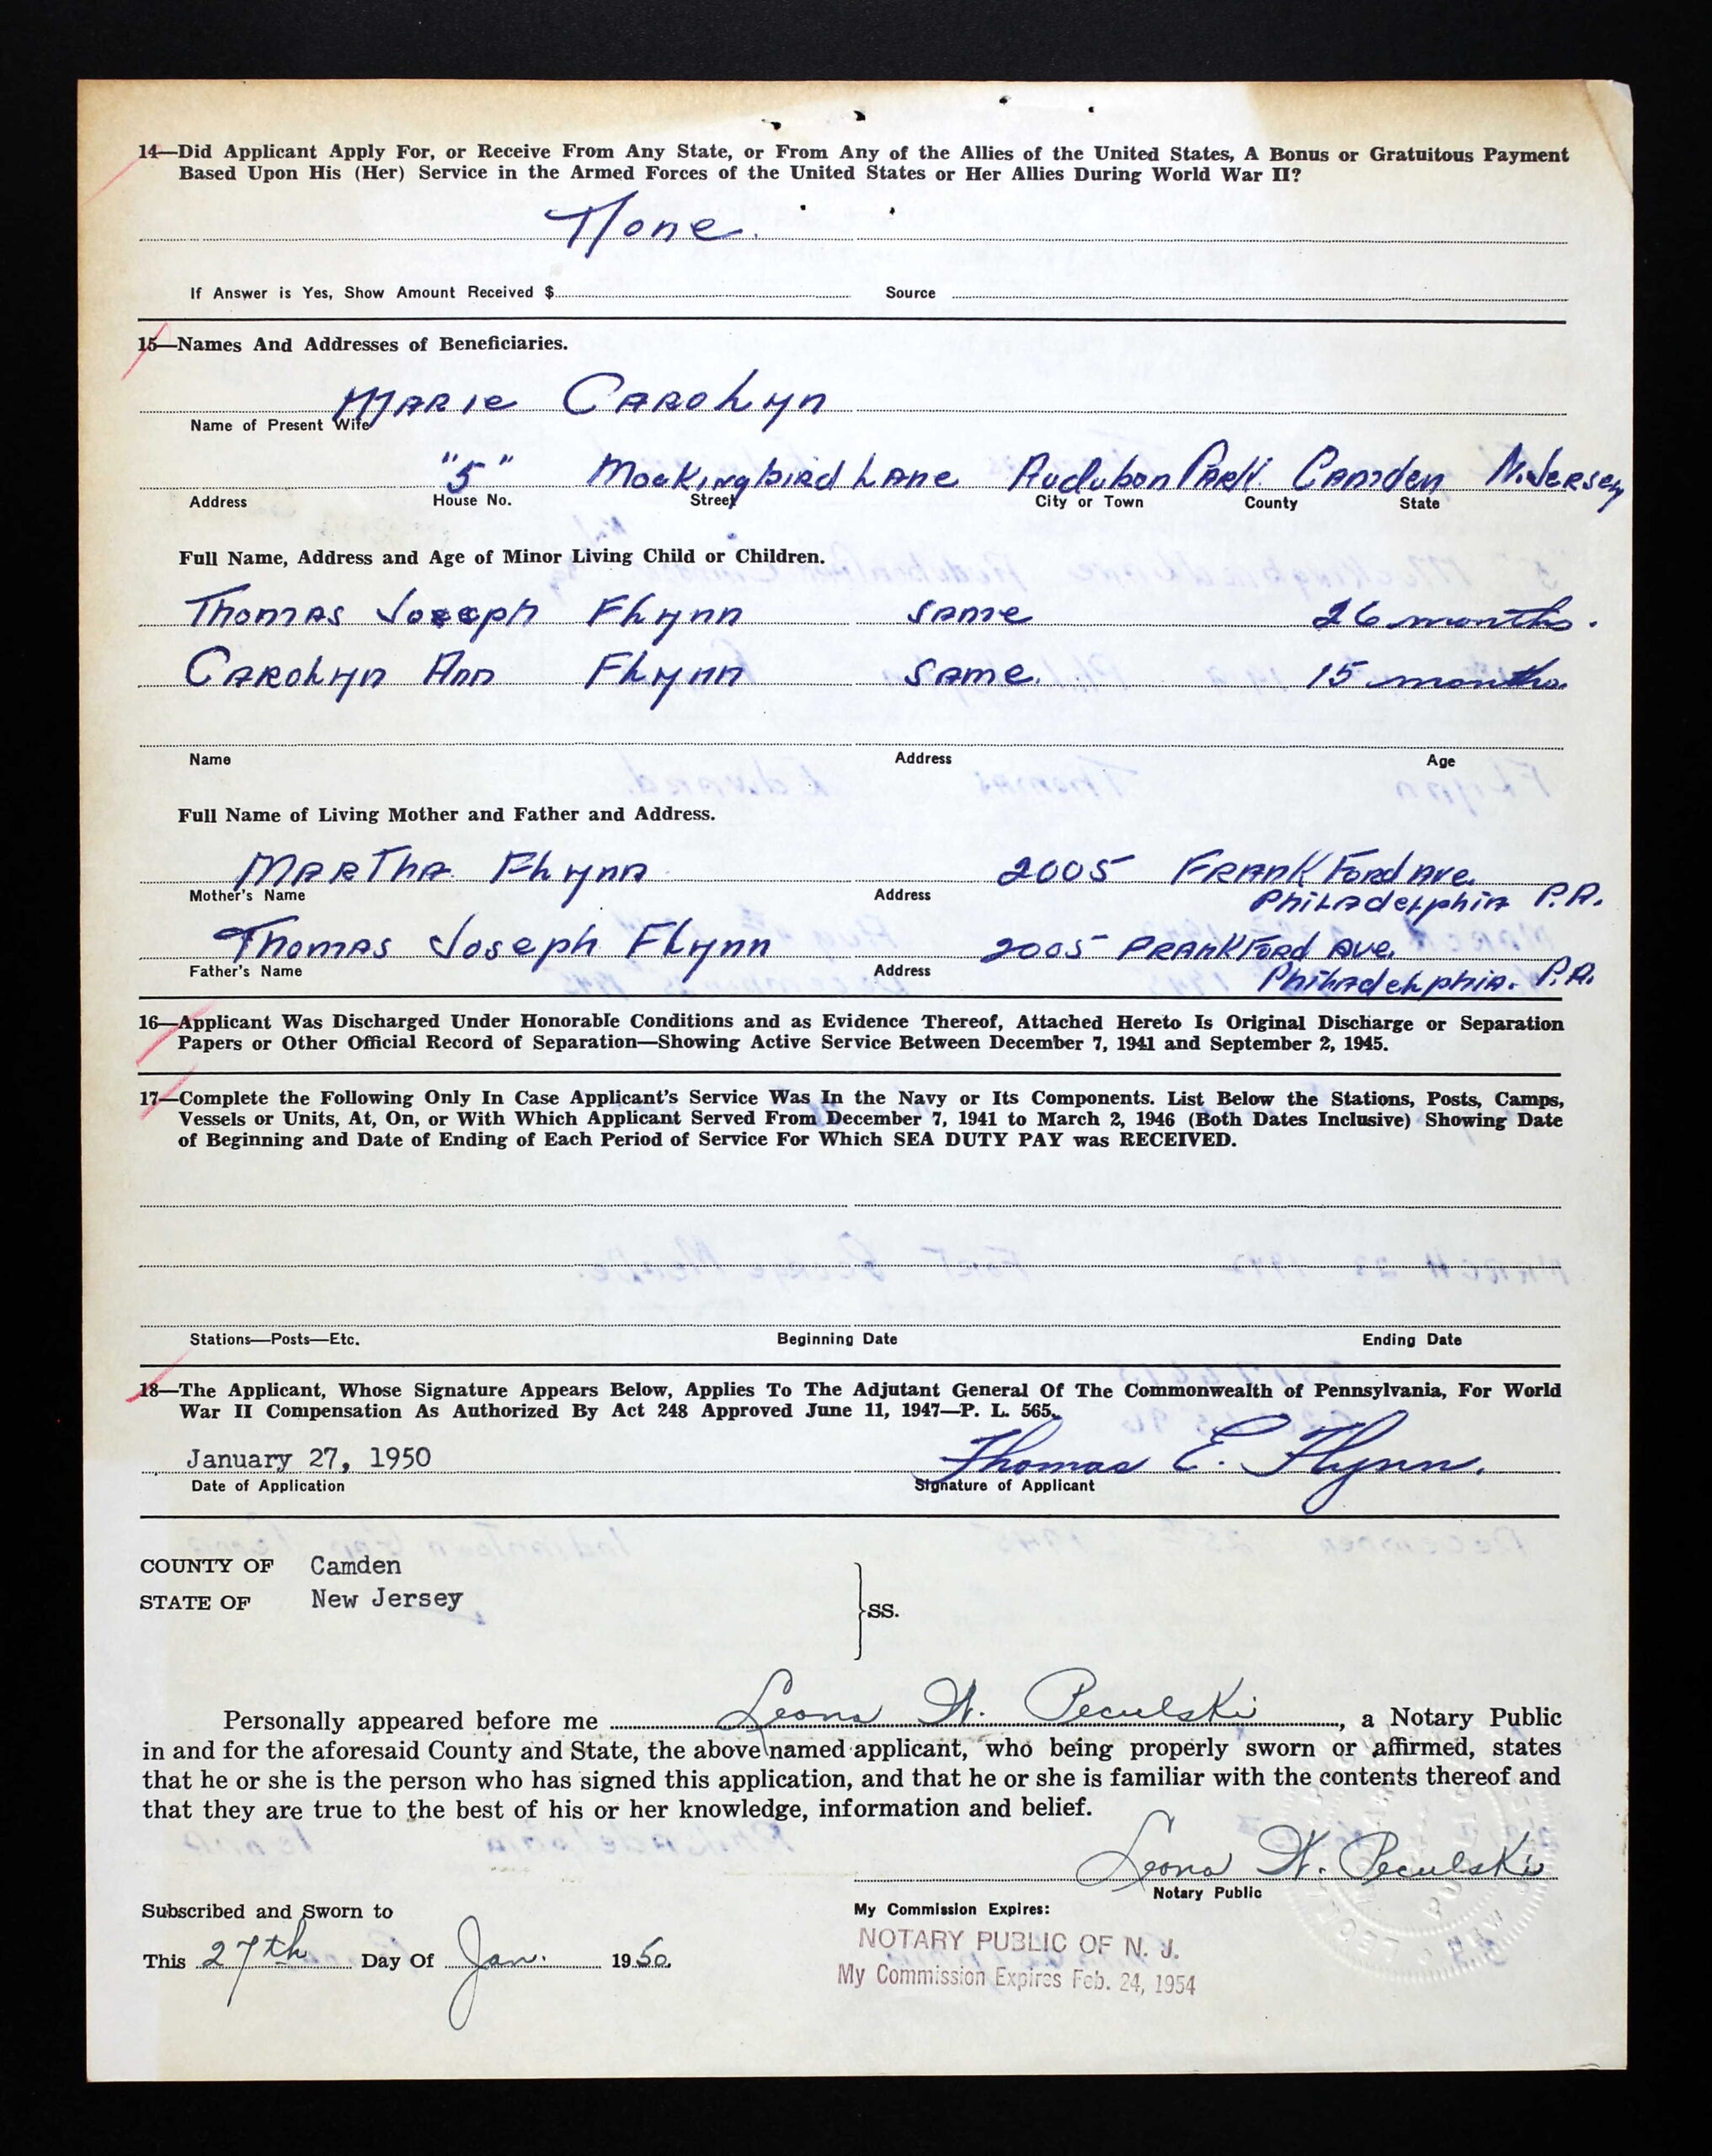 14—Did Applicant Apply For, or Receive From Any State, or From Any of the Allies of the United States, A Bonus or Gratuitous Payment
Based Upon His (Her) Service in the Armed Forces of the United States or Her Allies During World War II?
None.
If Answer is Yes, Show Amount Received $ Source
15—Names And Addresses of Beneficiaries.
Marie Carolyn
Name of Present Wife
"5" Mockingbird Lane Audubon Park Camden N. Jersey
Address House No. Street City or Town County State
Full Name, Address and Age of Minor Living Child or Children.
Thomas Joseph Flynn same 26 months.
Carolyn Ann Flynn same. 15 months.
Name Address Age
Full Name of Living Mother and Father and Address.
Martha Flynn 2005 Frankford Ave.
Mother's Name Address Philadelphia P.A.
Thomas Joseph Flynn 2005 Frankford Ave.
Father's Name Address Philadelphia. P.A.
16—Applicant Was Discharged Under Honorable Conditions and as Evidence Thereof, Attached Hereto Is Original Discharge or Separation
Papers or Other Official Record of Separation—Showing Active Service Between December 7, 1941 and September 2, 1945.
17—Complete the Following Only In Case Applicant's Service Was In the Navy or Its Components. List Below the Stations, Posts, Camps,
Vessels or Units, At, On, or With Which Applicant Served From December 7, 1941 to March 2, 1946 (Both Dates Inclusive) Showing Date
of Beginning and Date of Ending of Each Period of Service For Which SEA DUTY PAY was RECEIVED.
Stations—Posts—Etc. Beginning Date Ending Date
18—The Applicant, Whose Signature Appears Below, Applies To The Adjutant General Of The Commonwealth of Pennsylvania, For World
War II Compensation As Authorized By Act 248 Approved June 11, 1947—P. L. 565.
January 27, 1950 Thomas E. Flynn.
Date of Application Signature of Applicant
COUNTY OF Camden
STATE OF New Jersey
SS.
Personally appeared before me Leona W. Peculski, a Notary Public
in and for the aforesaid County and State, the above named applicant, who being properly sworn or affirmed, states
that he or she is the person who has signed this application, and that he or she is familiar with the contents thereof and
that they are true to the best of his or her knowledge, information and belief.
Leona W. Peculski
Notary Public
Subscribed and Sworn to My Commission Expires:
This 27th Day Of Jan. 1950.
NOTARY PUBLIC OF N. J.
My Commission Expires Feb. 24, 1954